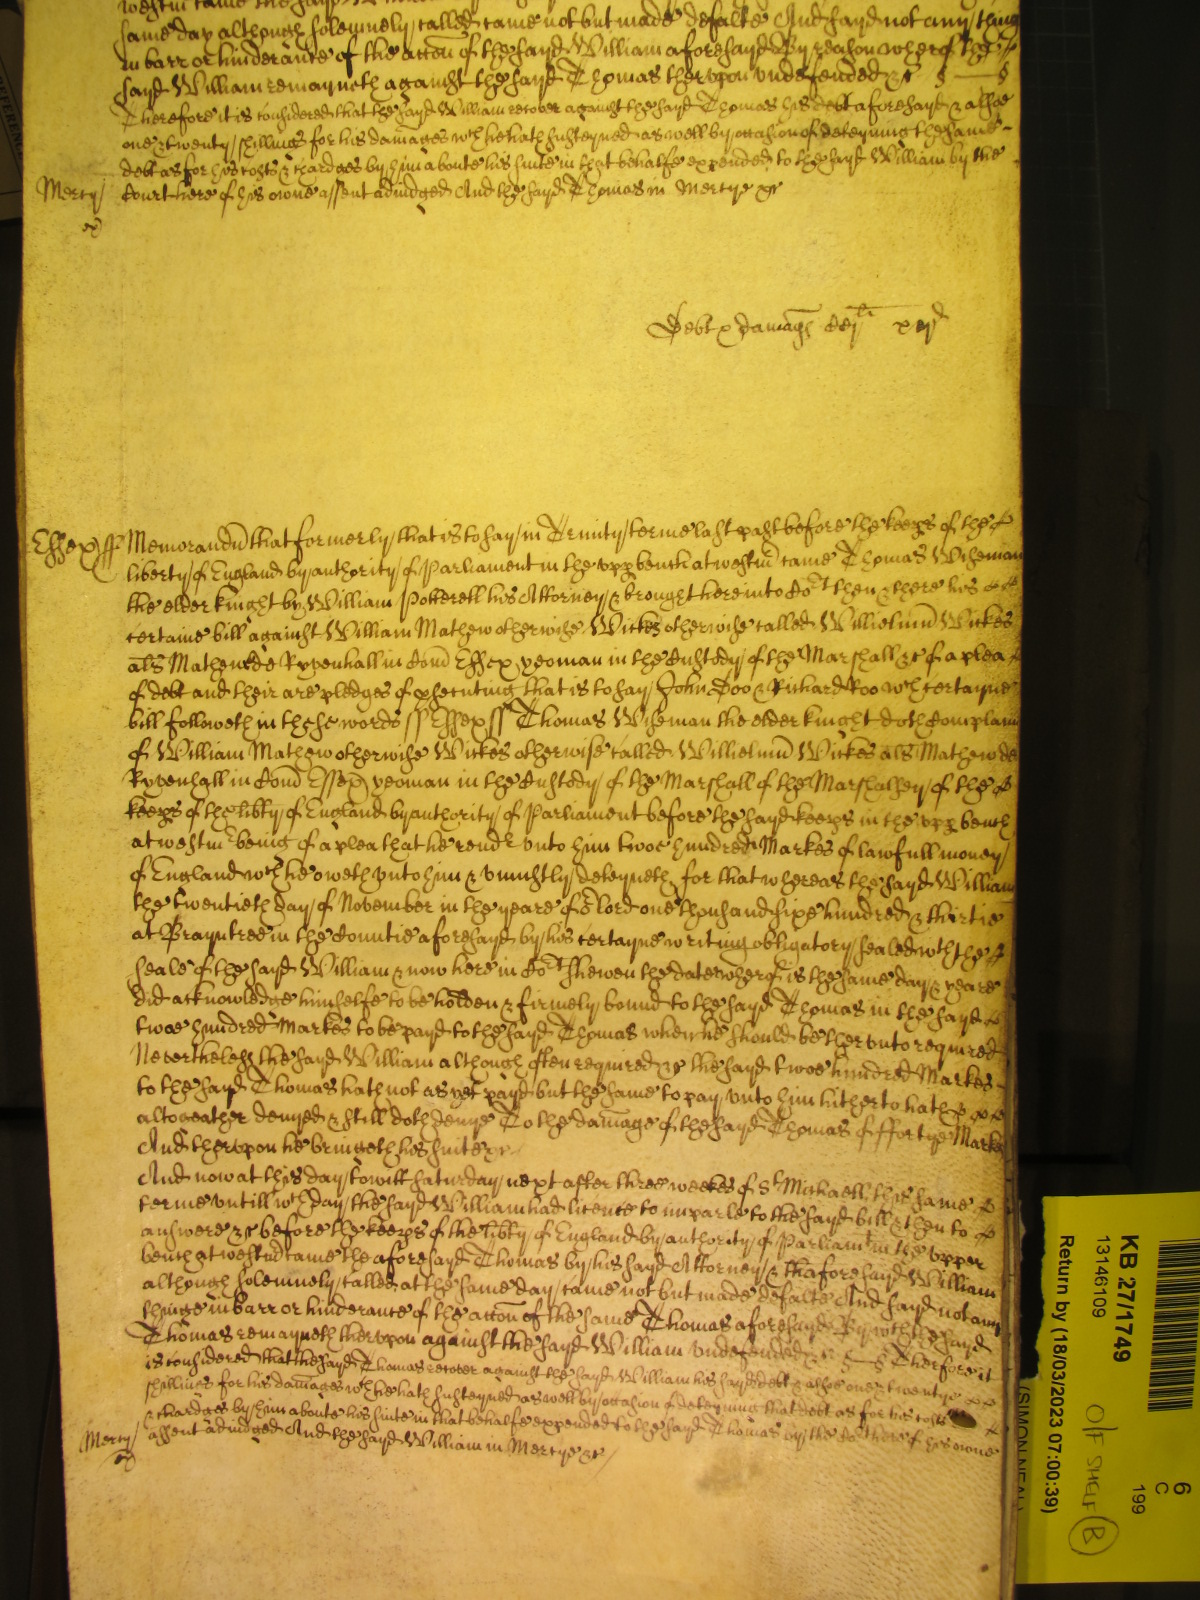 same day although solemnely called came not but made defalte And sayd not any thing
in barr or hinderance of the accon of the sayd William aforesayd By reason wherof the
sayd William remayneth against the sayd Thomas therupon undefended &c
Therefore it is considered that the sayd William recover against the sayd Thomas his debt aforesayd & alsoe
one & twenty shillings for his damages wch he hath susteyned as well by occasion of deteyning the same
debt as for his costs & chardges by him aboute his suite in that behalfe expended to the sayd William by the
Mercy Court here of his owne assent adiudged And the sayd Thomas in Mercye &c
Debt & damages
Essex ss Memorand that formerly that is to say in Trinity terme last past before the keeps of the
liberty of England by authority of Parliament in the upp bench at westm came Thomas Wiseman
the elder knight by William Potterell his Attorney & brought here into Cot then & there his
certaine bill against William Mathew otherwise Wickes otherwise called Willielmu Wickes
als Mathew de Ryvenhall in Com Essex yeoman in the Custody of the Marshall &c of a plea
of debt and their are pledges of prsecuting that is to say John Doo & Richard Roo wch certayne
bill followeth in these words ss Essex ss Thomas Wiseman the elder knight doth Complain
of William Mathew otherwise Wickes otherwise called Willielmu Wickes als Mathew de
Ryvenhall in Com Essex yeoman in the Custody of the Marshall of the Marshalsey of the
keeps of the libty of England by authority of Parliament before the sayd keeps in the upp bench
at westm being of a plea that he rendr unto him twoe hundred Markes of lawfull money
of England wch he oweth unto him & uniustly deteyneth for that whereas the sayd William
the twentieth day of November in the yeare of or Lord one thousand sixe hundred & thirtie
at Brayntree in the Countie aforesayd by his certayne writing obligatory sealed with the
seale of the sayd William & now here in Cot shewen the date wherof is the same day & yeare
did acknowledge himselfe to be holden & firmely bound to the sayd Thomas in the sayd
twoe hundred Markes to be payd to the sayd Thomas when he should be therunto required
Neverthelesse the sayd William although often required &c the sayd twoe hundred Markes
to the sayd Thomas hath not as yet payd but the same to pay unto him hitherto hath
altogeather denyed & still doth denye To the damage of the sayd Thomas of ffortye Markes
And therupon he bringeth his suite &c
And now at this day to witt saturday next after three weekes of St Michaell this same
terme untill wch day the sayd William had licence to imparle to the sayd bill & then to
answere &c before the keeps of the libty of England by authority of Parliamt in the upper
bench at westm came the aforesayd Thomas by his sayd Attorney & thaforesayd William
although solemnely called at the same day came not but made defalte And sayd not any
thinge in barr or hinderance of the accon of the same Thomas aforesayd By wch the sayd
Thomas remayneth therupon against the sayd William undefended &c Therfore it
is considered that the sayd Thomas recover against the sayd William his sayd debt & alsoe one & twentye
shillings for his damages wch he hath susteyned as well by occasion of deteyning that debt as for his costs
& chardges by him aboute his suite in that behalfe expended to the sayd Thomas by the Cot here of his owne
Mercy assent adiudged And the sayd William in Mercye &c
KB 27/1749
13146109
Return by (18/03/2023 07:00:39)
6
C
199
O/F SHELF B
(SIMON NEAL)